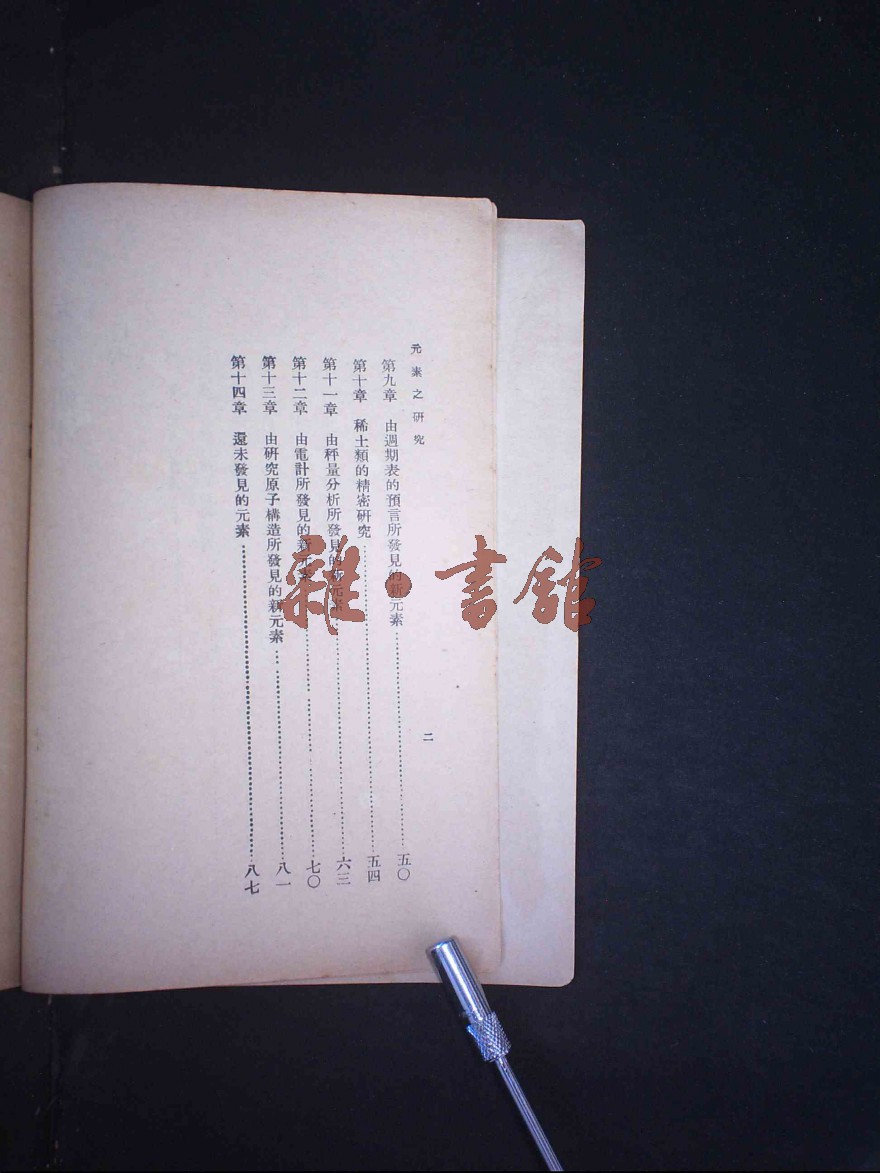 元素之研究
二
第九章　由週期表的預言所發見的新元素……五〇
第十章　稀土類的精密研究……五四
第十一章　由秤量分析所發見的新元素……六三
第十二章　由電計所發見的新元素……七〇
第十三章　由研究原子構造所發見的新元素……八一
第十四章　還未發見的元素……八七
雜·書館